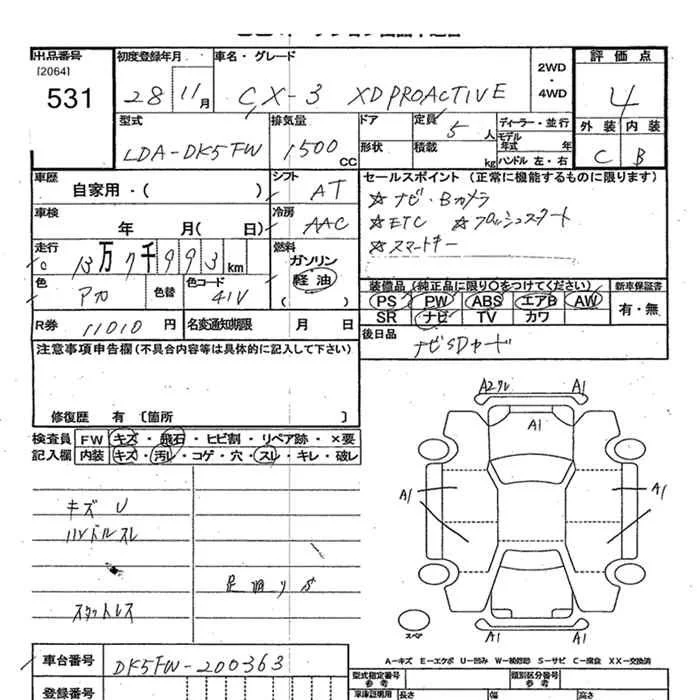 出品番号
[2064]
531
初度登録年月
28 11月
車名・グレード
CX-3 XD PROACTIVE
2WD
・
4WD
評価点
4
外装 内装
C B
型式
LDA-DK5FW
排気量
1500 CC
ドア
形状
定員
5人
積載
kg
ディーラー・並行
モデル
年式 年
ハンドル 左・右
車歴
自家用・( )
シフト
AT
車検
年 月( 日)
冷房
AAC
走行
13万7千993km
燃料
ガソリン
軽油
( )
色
アカ
色替
色コード
41V
R券
11010 円
名変通知期限 月 日
セールスポイント (正常に機能するものに限ります)
☆ナビ・Bカメラ
☆ETC ☆プッシュスタート
☆スマートキー
装備品(純正品に限り○をつけてください)
PS PW ABS エアB AW
SR ナビ TV カワ
新車保証書
有・無
後日品
ナビSDカード
注意事項申告欄(不具合内容等は具体的に記入して下さい)
修復歴 有 〔箇所 〕
検査員
記入欄
FW キズ・飛石・ヒビ割・リペア跡・×要
内装 キズ・汚レ・コゲ・穴・スレ・キレ・破レ
キズ U
ハンドルスレ
足廻りサ
スタットレス
A2 A1
A1
A1 A1
A1 A1
スペア
A-キズ E-エクボ U-凹み W-補修跡 S-サビ C-腐食 XX-交換済
車台番号
DK5FW-200363
登録番号
型式指定番号
参考
類別区分番号
参考
車庫証明用
長さ 幅 高さ